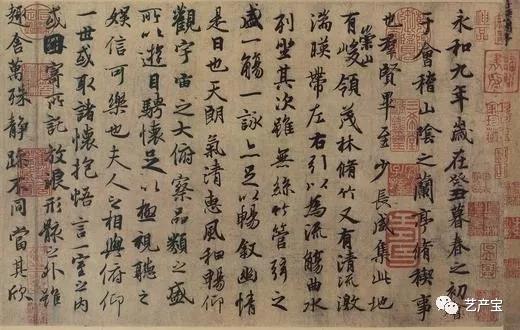 永和九年歲在癸丑暮春之初
于會稽山陰之蘭亭脩稧事
也羣賢畢至少長咸集此地
有崇山峻領茂林脩竹又有清流激
湍暎帶左右引以為流觴曲水
列坐其次雖無絲竹管弦之
盛一觴一詠亦足以暢叙幽情
是日也天朗氣清惠風和暢仰
觀宇宙之大俯察品類之盛
所以遊目騁懷足以極視聽之
娛信可樂也夫人之相與俯仰
一世或取諸懷抱悟言一室之內
或因寄所託放浪形骸之外雖
趣舍萬殊靜躁不同當其欣
艺产宝